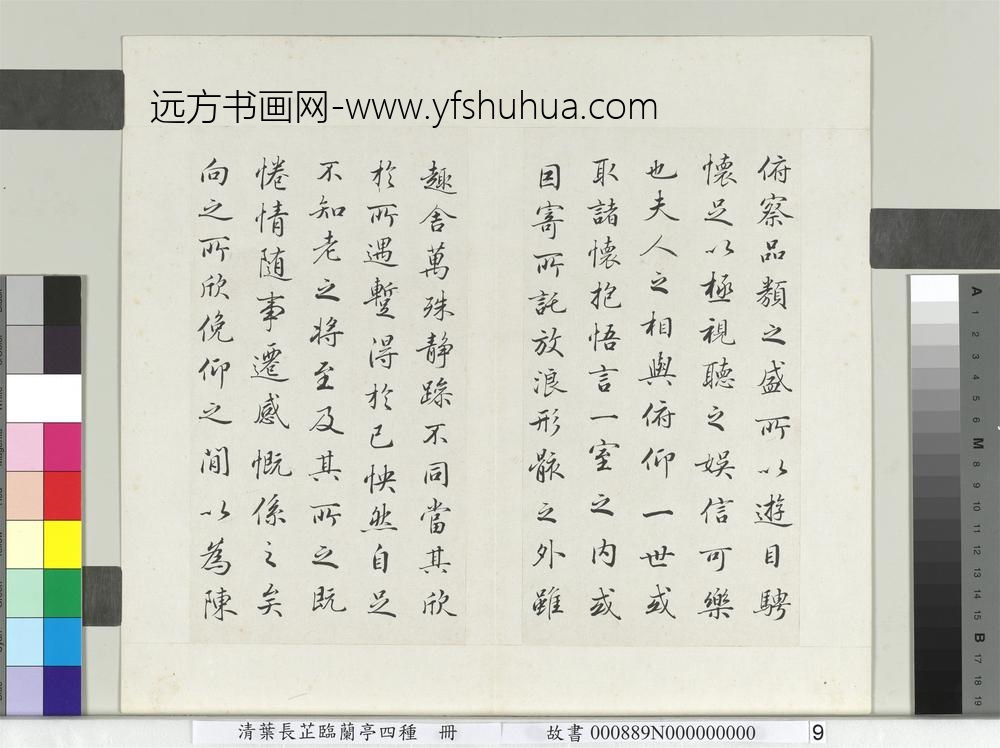 远方书画网-www.yfshuhua.com
俯察品類之盛所以遊目騁
懷足以極視聽之娛信可樂
也夫人之相與俯仰一世或
取諸懷抱悟言一室之内或
因寄所託放浪形骸之外雖
趣舍萬殊静躁不同當其欣
於所遇暫得於己怏然自足
不知老之将至及其所之既
惓情随事遷感慨係之矣
向之所欣俛仰之閒以為陳
清葉長芷臨蘭亭四種 冊 故書 000889N000000000 9
A 1 2 3 4 5 6 M 8 9 10 11 12 13 14 15 B 17 18 19